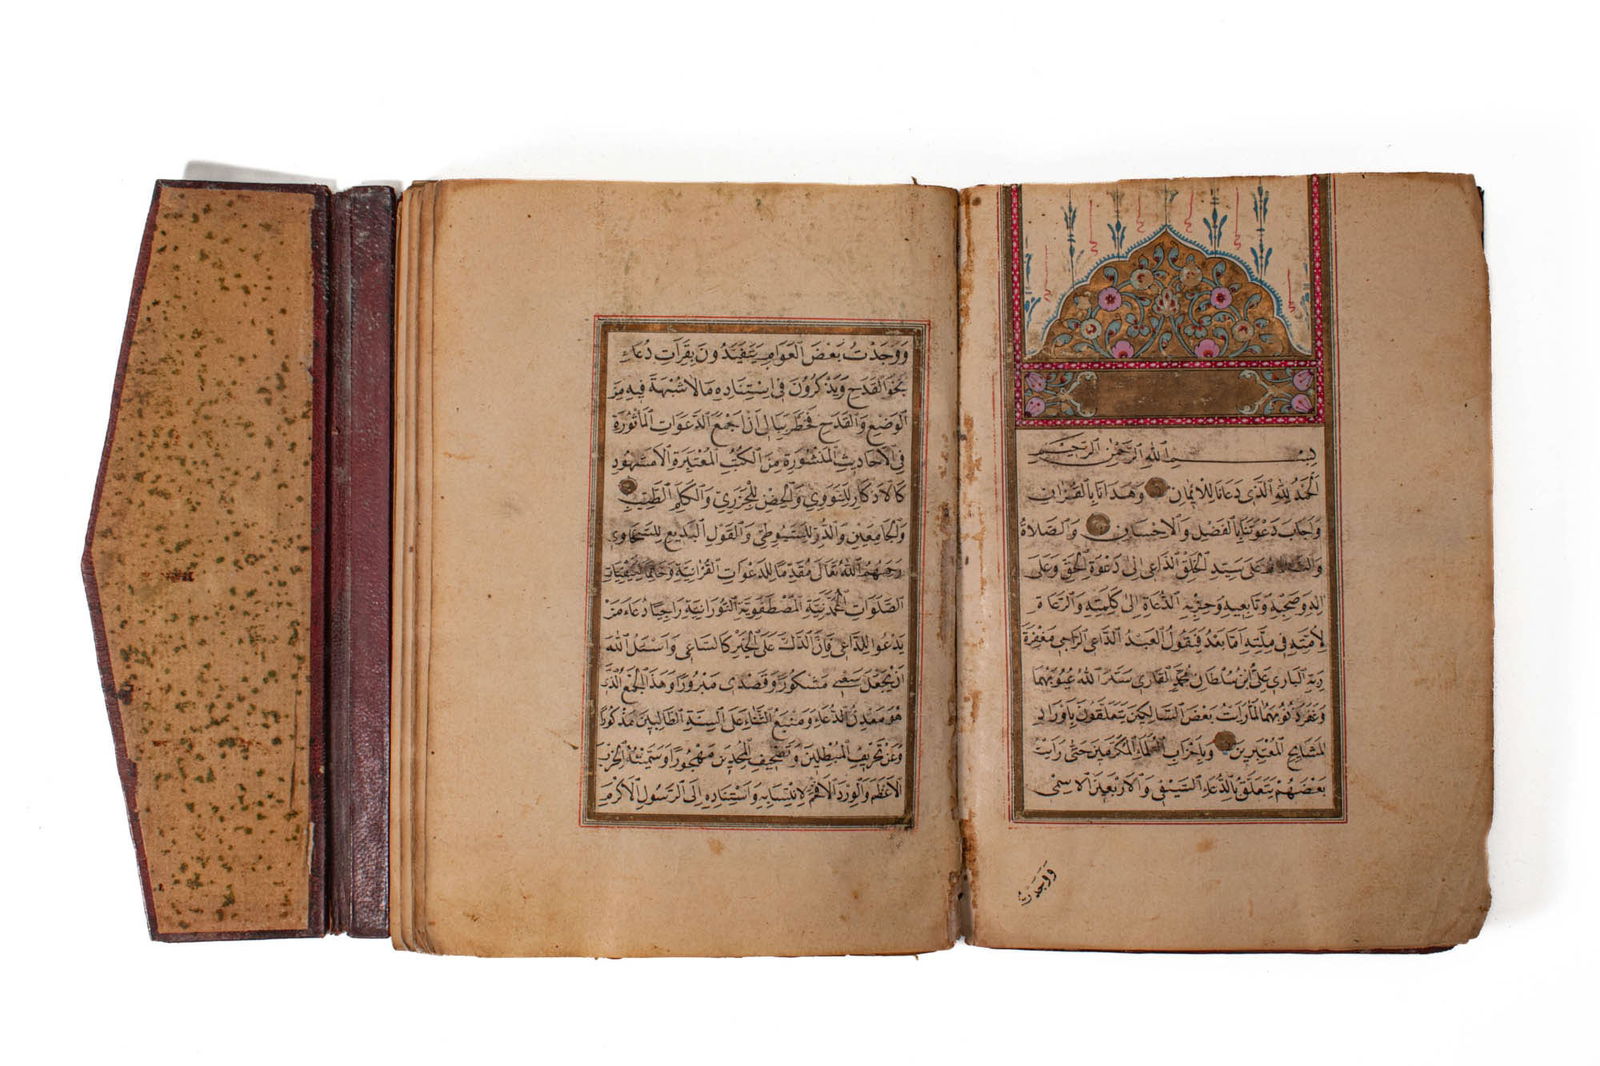 بسم الله الرحمن الرحيم
الحمد لله الذي دعانا للايمان وهدانا بالقران
واجاب دعوتنا بالفضل والاحسان والصلاة
والسلام على سيد الخلق الداعى الى دعوة الحق وعلى
اله وصحبه وتابعيه وحزبه الدعاة الى كلمته والرعاة
لامته في ملته اما بعد فيقول العبد الداعى الراجى مغفرة
ربه البارى على ابن سلطان محمد القارى ستر الله عيوبهما
وغفر ذنوبهما لما رايت بعض السالكين يتعلقون باوراد
المشايخ المعتبرين وباحزاب العلماء المكرمين حتى رايت
بعضهم يتعلق بالدعاء السيفى والاربعين الاسمى
ووجدت
ووجدت بعض العوام يتقيدون بقرات دعاء
نحو القدح ويذكرون في استناده ما لا شبهة فيه من
الوضع والقدح فخطر ببالى ان اجمع الدعوات الماثورة
في الاحاديث المنشورة من الكتب المعتبرة المشهورة
كالاذكار للنووي والحصن للجزري والكلم الطيب
والجامعين والدر للسيوطي والقول البديع للسخاوي
رحمهم الله تعالى مقدما للدعوات القرانية وخاتما بكيفيات
الصلوات المحمدية المصطفوية النورانية راجيا دعاء من
يدعوا للداعى فان الدال على الخير كالساعى واسئل الله
ان يجعل سعيى مشكورا وقصدى مبرورا وهذا الجمع الذى
هو معدن الدعاء ومنبع الثناء على السنة الطالبين مذكورا
وعن تحريف المبطلين وتصحيف الملحدين مهجورا وسميته الحزب
الاعظم والورد الافخم لانتسابه واستناده الى الرسول الاكرم